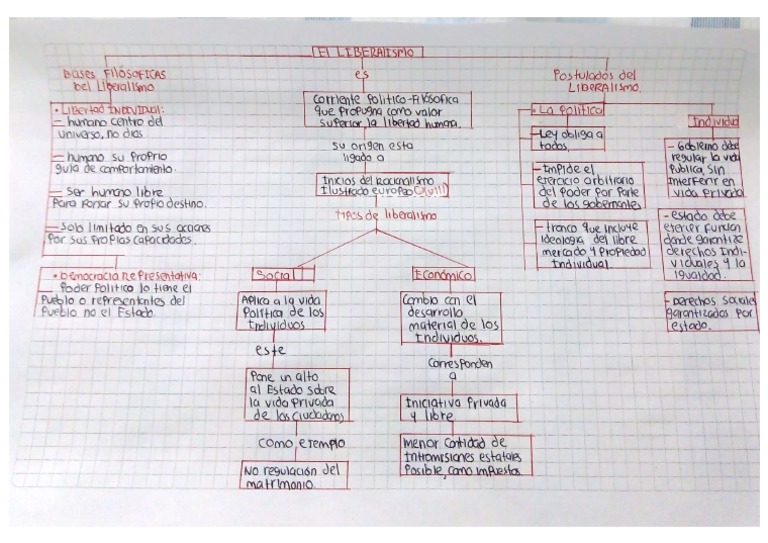 El LIBERALISMO
Bases Filósoficas
del Liberalismo
• Libertad Individual:
— humano centro del
universo, no dios
— humano su propio
guia de comportamiento.
— Ser humano libre
Para forjar su propio destino.
— Solo limitado en sus acciones
Por sus propias capacidades.
• Democracia Representativa:
Poder Político lo tiene el
Pueblo o representantes del
Pueblo no el Estado.
es
Corriente Político-Filósofica
que propugna como valor
superior, la libertad humana.
su origen esta
ligado a
Inicios del Racionalismo
Ilustrado europeo (XVIII)
tipos de liberalismo
Social
Aplica a la vida
Política de los
Individuos
este
Pone un alto
al Estado sobre
la vida Privada
de los ciudadanos
como ejemplo
No regulación del
matrimonio.
Económico
Cambio con el
desarrollo
material de los
Individuos.
corresponden
a
Iniciativa Privada
y libre
Menor cantidad de
Intromisiones estatales
Posible, como impuestos
Postulados del
LIBERALISMO.
• La Política
— Ley obliga a
todos.
— Impide el
ejercicio arbitrario
del Poder por Parte
de los gobernantes
— tronco que incluye
Ideología del libre
mercado y Propiedad
Individual.
Individuo
— Gobierno debe
regular la vida
Publica, sin
Interferir en
vida Privada
— estado debe
ejercer función
donde garantize
derechos Indi-
viduales y la
igualdad.
— Derechos Sociales
garantizados por
estado.